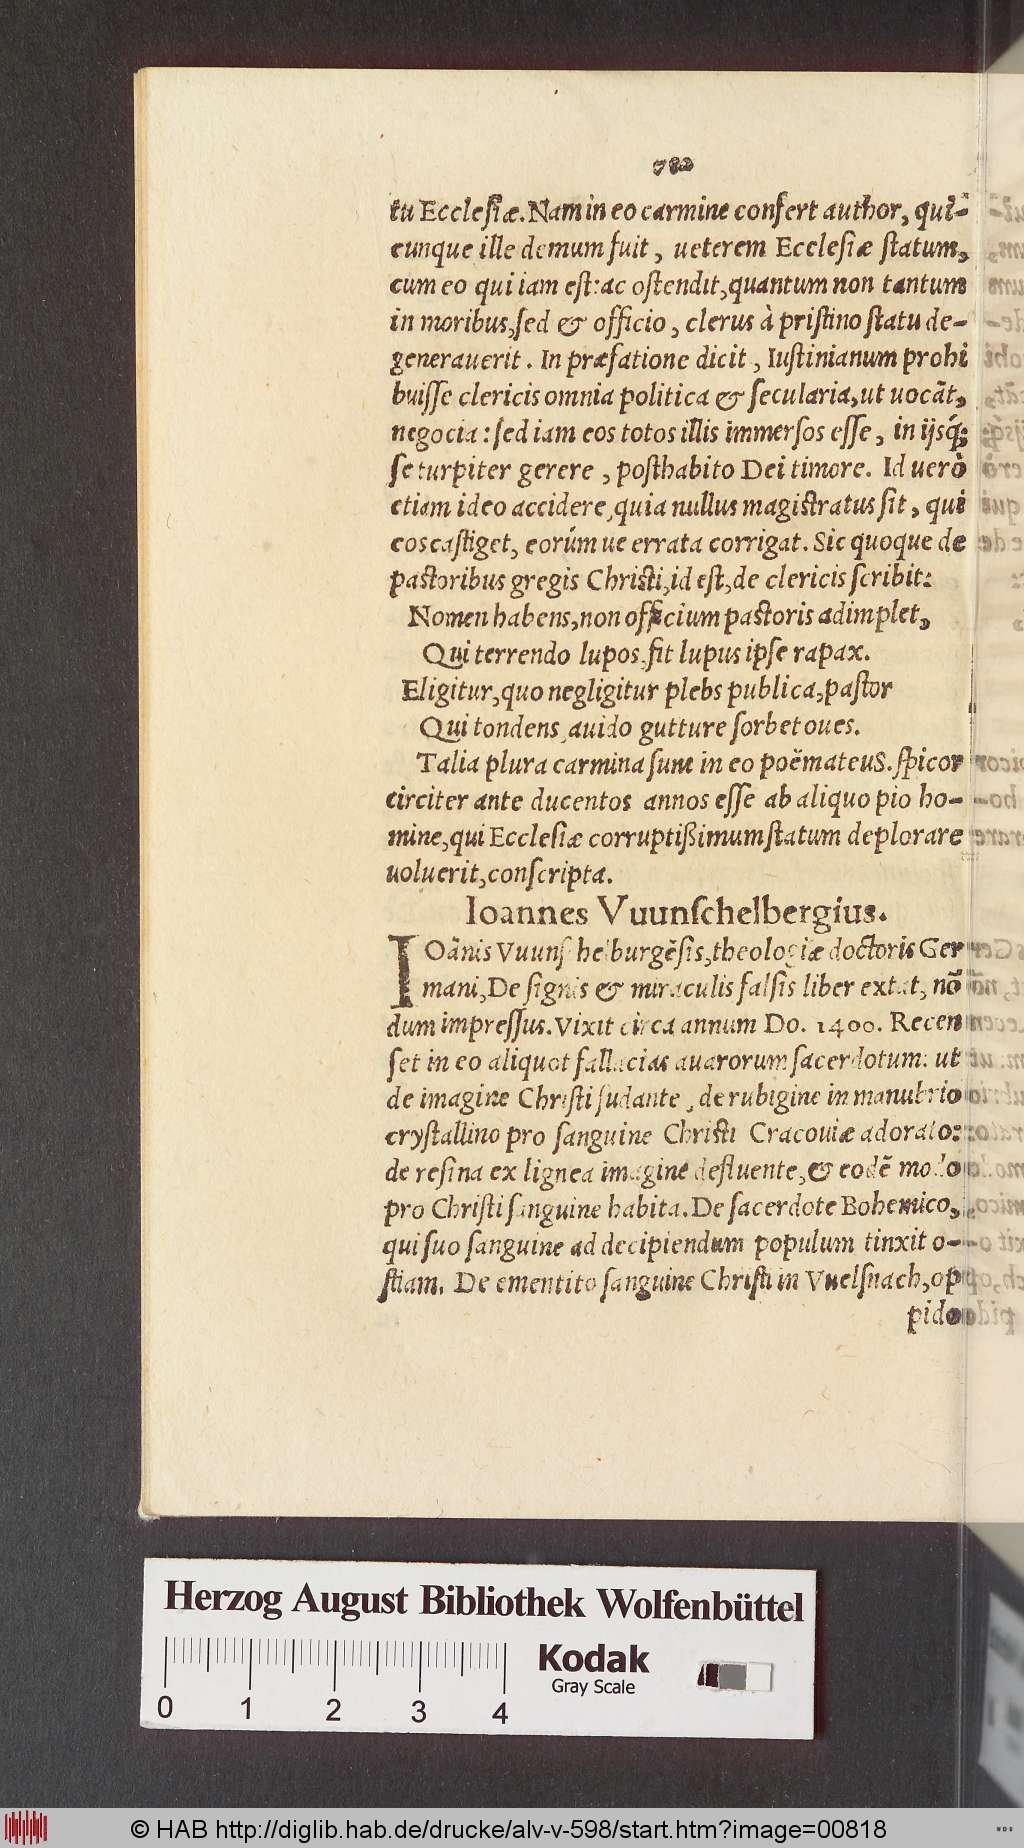 782
tu Ecclesiæ. Nam in eo carmine confert author, quit-
cunque ille demum fuit, ueterem Ecclesiæ statum,
cum eo qui iam est: ac ostendit, quantum non tantum
in moribus, sed & officio, clerus à pristino statu de-
generauerit. In præfatione dicit, Iustinianum prohi
buisse clericis omnia politica & secularia, ut uocāt,
negocia: sed iam eos totos illis immersos esse, in ijsq́;
se turpiter gerere, posthabito Dei timore. Id uerò
etiam ideo accidere, quia nullus magistratus sit, qui
eos castiget, eorúm ue errata corrigat. Sic quoque de
pastoribus gregis Christi, id est, de clericis scribit:
Nomen habens, non officium pastoris adimplet,
Qui terrendo lupos, fit lupus ipse rapax.
Eligitur, quo negligitur plebs publica, pastor
Qui tondens, auido gutture sorbet oues.
Talia plura carmina sunt in eo poëmateuS. spicor
circiter ante ducentos annos esse ab aliquo pio ho-
mine, qui Ecclesiæ corruptißimum statum deplorare
uoluerit, conscripta.
Ioannes Vuunschelbergius.
IOānis Vuunschelburgēsis, theologiæ doctoris Ger
mani, De signis & miraculis falsis liber extat, nō
dum impressus. Vixit circa annum Do. 1400. Recen
set in eo aliquot fallacias auarorum sacerdotum: ut
de imagine Christi sudante, de rubigine in manubrio
crystallino pro sanguine Christi Cracouiæ adorato:
de resina ex lignea imagine defluente, & eodē modo
pro Christi sanguine habita. De sacerdote Bohemico,
qui suo sanguine ad decipiendum populum tinxit o-
stiam. De ementito sanguine Christi in Vuelsnach, op
pido
Herzog August Bibliothek Wolfenbüttel
Kodak
Gray Scale
0 1 2 3 4
© HAB http://diglib.hab.de/drucke/alv-v-598/start.htm?image=00818